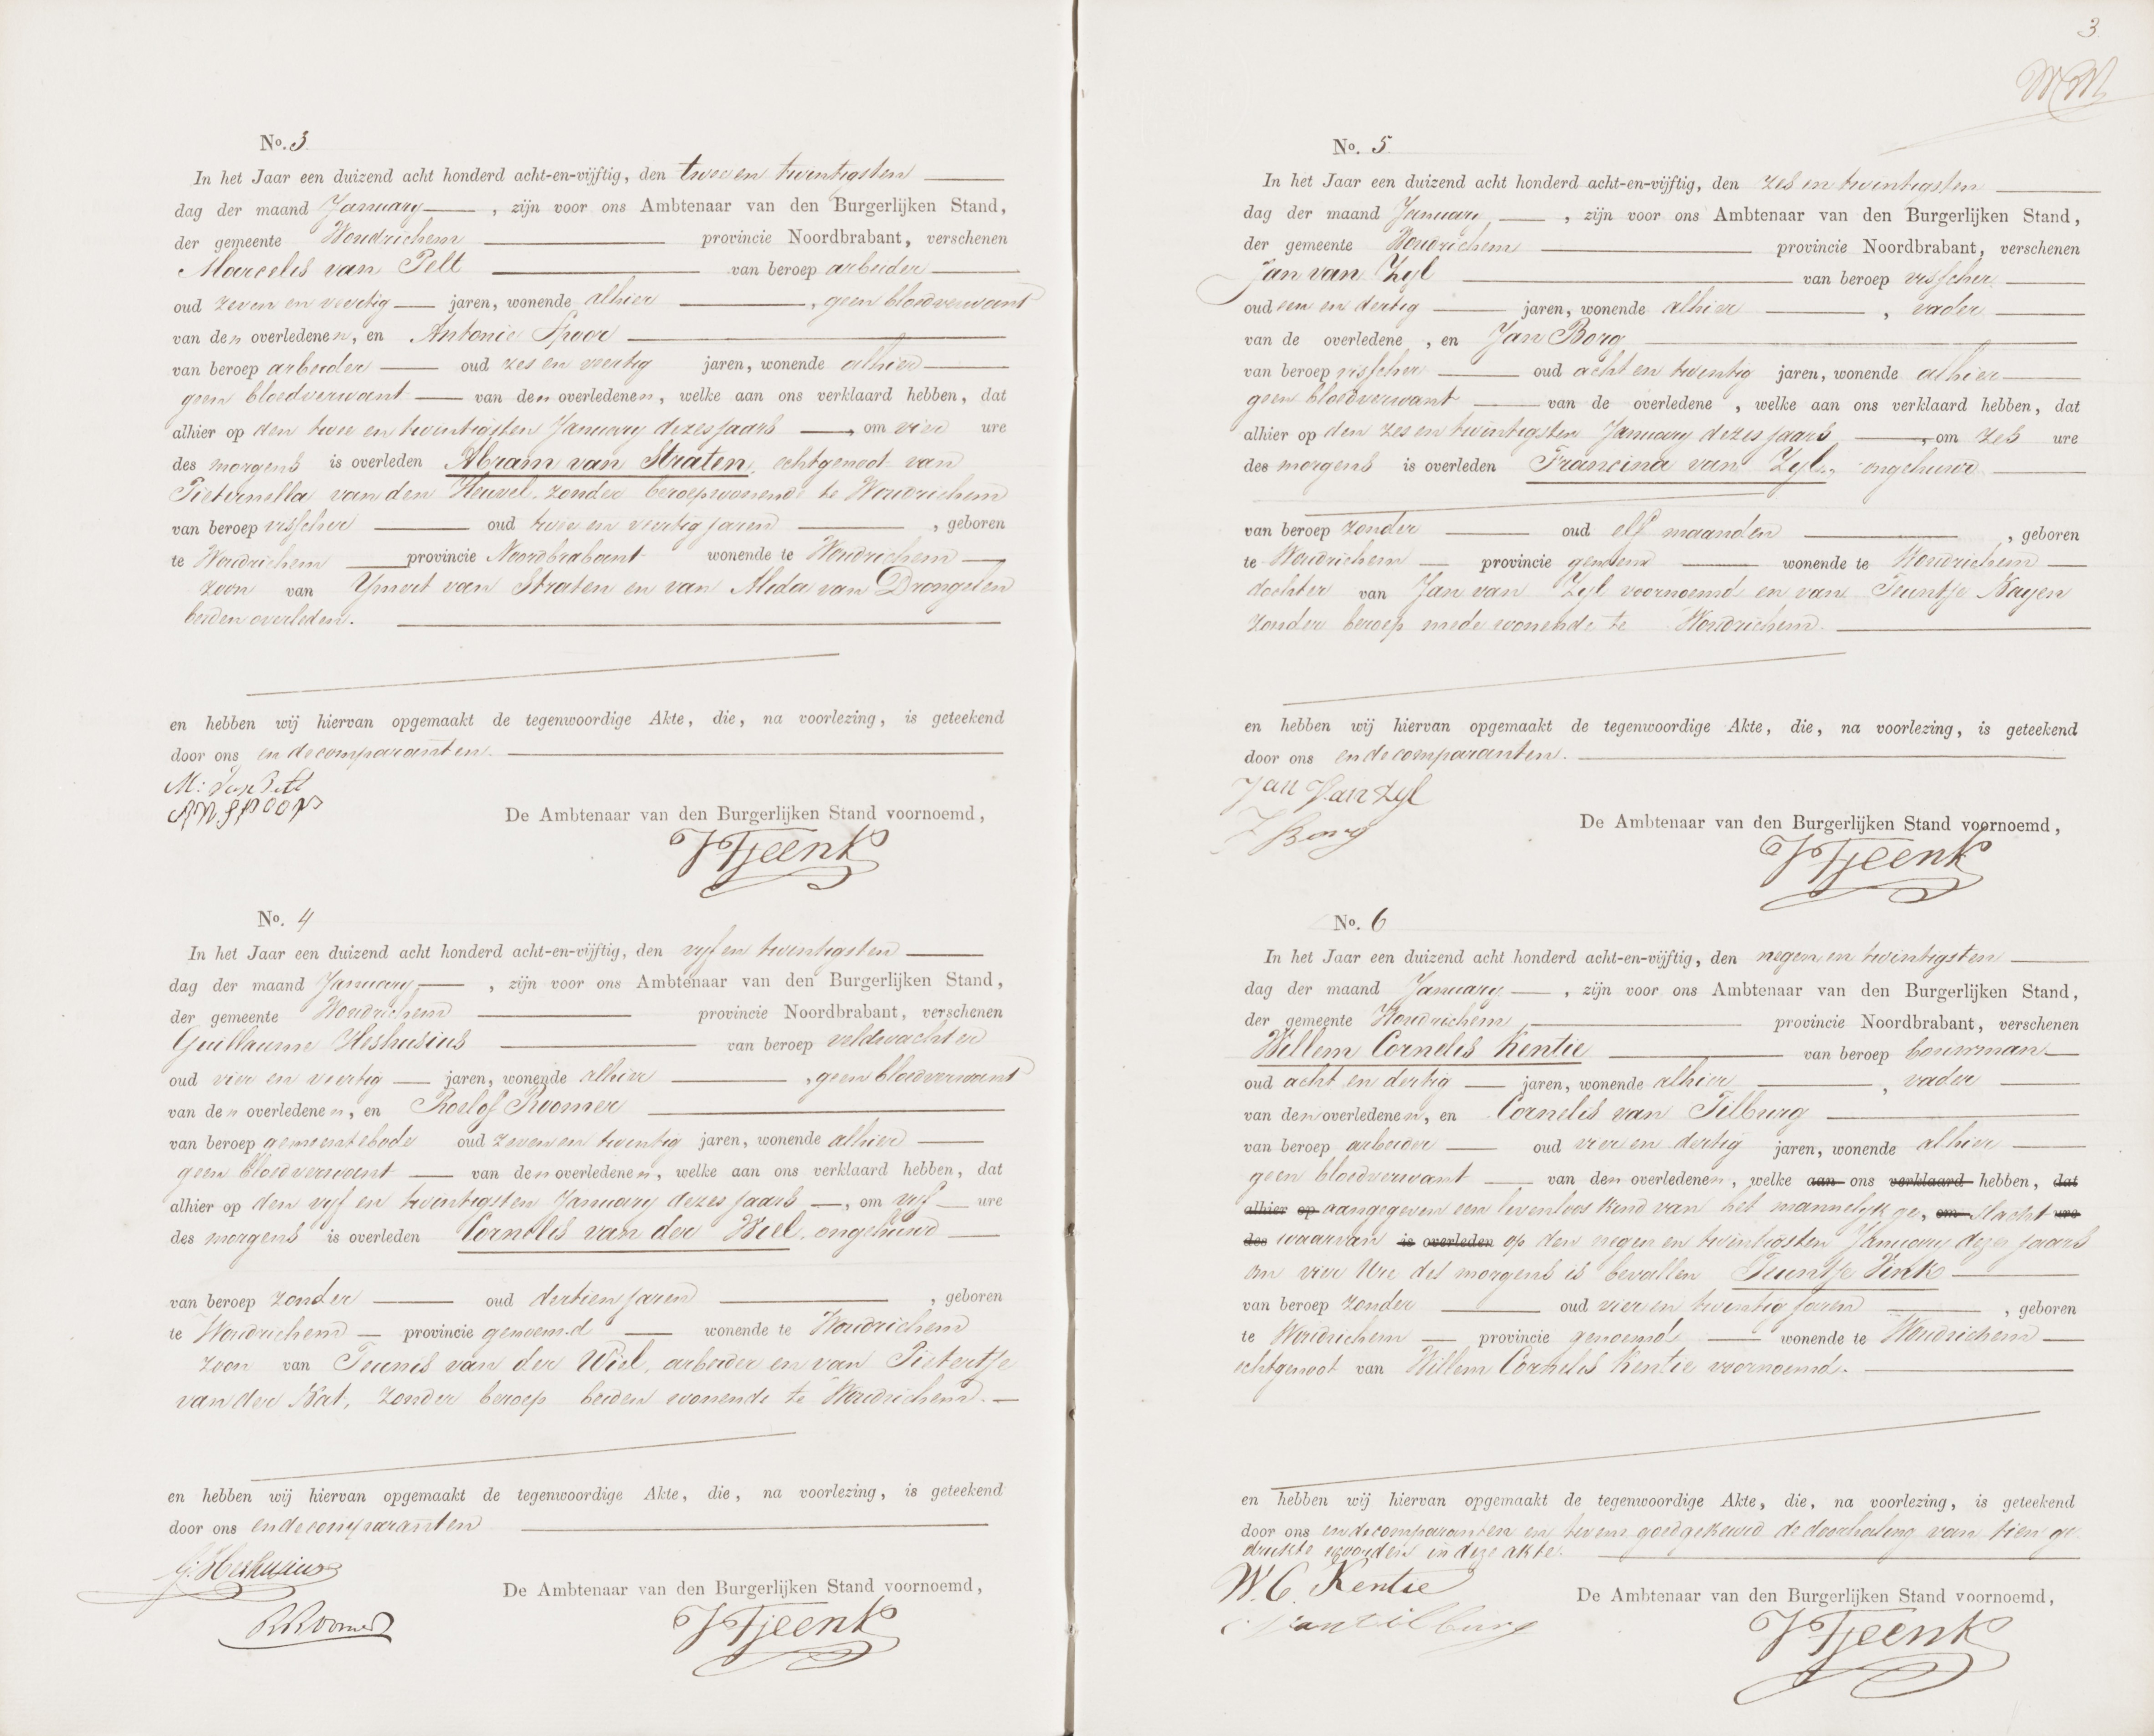 No. 3
In het Jaar een duizend acht honderd acht-en-vijftig, den twee en twintigsten
dag der maand January, zijn voor ons Ambtenaar van den Burgerlijken Stand,
der gemeente Woudrichem provincie Noordbrabant, verschenen
Marcelis van Pelt van beroep arbeider
oud zeven en veertig jaren, wonende alhier, geen bloedverwant
van den overledenen, en Antonie Spoor
van beroep arbeider oud zes en veertig jaren, wonende alhier
geen bloedverwant van den overledenen, welke aan ons verklaard hebben, dat
alhier op den twee en twintigsten January dezes jaars, om vier ure
des morgens is overleden Abram van Straten, echtgenoot van
Pieternella van den Heuvel, zonder beroep wonende te Woudrichem
van beroep visscher oud twee en veertig jaren, geboren
te Woudrichem provincie Noordbrabant wonende te Woudrichem
zoon van Ymert van Straten en van Alida van Drongelen
beiden overleden.
en hebben wij hiervan opgemaakt de tegenwoordige Akte, die, na voorlezing, is geteekend
door ons en de comparanten.
M: van Pelt
AN SPOOR
De Ambtenaar van den Burgerlijken Stand voornoemd,
Tjeenk
No. 4
In het Jaar een duizend acht honderd acht-en-vijftig, den vyf en twintigsten
dag der maand January, zijn voor ons Ambtenaar van den Burgerlijken Stand,
der gemeente Woudrichem provincie Noordbrabant, verschenen
Guillaume Heshusius van beroep veldwachter
oud vier en veertig jaren, wonende alhier, geen bloedverwant
van den overledenen, en Roelof Roomer
van beroep gemeentebode oud zeven en twintig jaren, wonende alhier
geen bloedverwant van den overledenen, welke aan ons verklaard hebben, dat
alhier op den vyf en twintigsten January dezes jaars, om vyf ure
des morgens is overleden Cornelis van der Wiel, ongehuwd
van beroep zonder oud dertien jaren, geboren
te Woudrichem provincie genoemd wonende te Woudrichem
zoon van Teunis van der Wiel, arbeider en van Pietertje
van der Kat, zonder beroep beiden wonende te Woudrichem.
en hebben wij hiervan opgemaakt de tegenwoordige Akte, die, na voorlezing, is geteekend
door ons en de comparanten
G: Heshusius
RRoomer
De Ambtenaar van den Burgerlijken Stand voornoemd,
Tjeenk
3
No. 5
In het Jaar een duizend acht honderd acht-en-vijftig, den zes en twintigsten
dag der maand January, zijn voor ons Ambtenaar van den Burgerlijken Stand,
der gemeente Woudrichem provincie Noordbrabant, verschenen
Jan van Zyl van beroep visscher
oud een en dertig jaren, wonende alhier, vader
van de overledene, en Jan Borg
van beroep visscher oud acht en twintig jaren, wonende alhier
geen bloedverwant van de overledene, welke aan ons verklaard hebben, dat
alhier op den zes en twintigsten January dezes jaars, om zes ure
des morgens is overleden Francina van Zyl, ongehuwd
van beroep zonder oud elf maanden, geboren
te Woudrichem provincie genoemd wonende te Woudrichem
dochter van Jan van Zyl voornoemd en van Teuntje Kayen
zonder beroep mede wonende te Woudrichem.
en hebben wij hiervan opgemaakt de tegenwoordige Akte, die, na voorlezing, is geteekend
door ons en de comparanten.
Jan Van Zyl
J Borg
De Ambtenaar van den Burgerlijken Stand voornoemd,
Tjeenk
No. 6
In het Jaar een duizend acht honderd acht-en-vijftig, den negen en twintigsten
dag der maand January, zijn voor ons Ambtenaar van den Burgerlijken Stand,
der gemeente Woudrichem provincie Noordbrabant, verschenen
Willem Cornelis Kentie van beroep bouwman
oud acht en dertig jaren, wonende alhier, vader
van den overledenen, en Cornelis van Tilburg
van beroep arbeider oud vier en dertig jaren, wonende alhier
geen bloedverwant van den overledenen, welke aan ons verklaard hebben, dat
alhier op aangegeven een levenloos kind van het mannelyk ge, om slacht ure
des waarvan is overleden op den negen en twintigsten January dezes jaars
om vier Ure des morgens is bevallen Teuntje Vink
van beroep zonder oud vier en twintig jaren, geboren
te Woudrichem provincie genoemd wonende te Woudrichem
echtgenoot van Willem Cornelis Kentie voornoemd.
en hebben wij hiervan opgemaakt de tegenwoordige Akte, die, na voorlezing, is geteekend
door ons en de comparanten en tevens goedgekeurd de doorhaling van tien ge
drukte woorden in deze akte.
W. C. Kentie
van tilburg
De Ambtenaar van den Burgerlijken Stand voornoemd,
Tjeenk